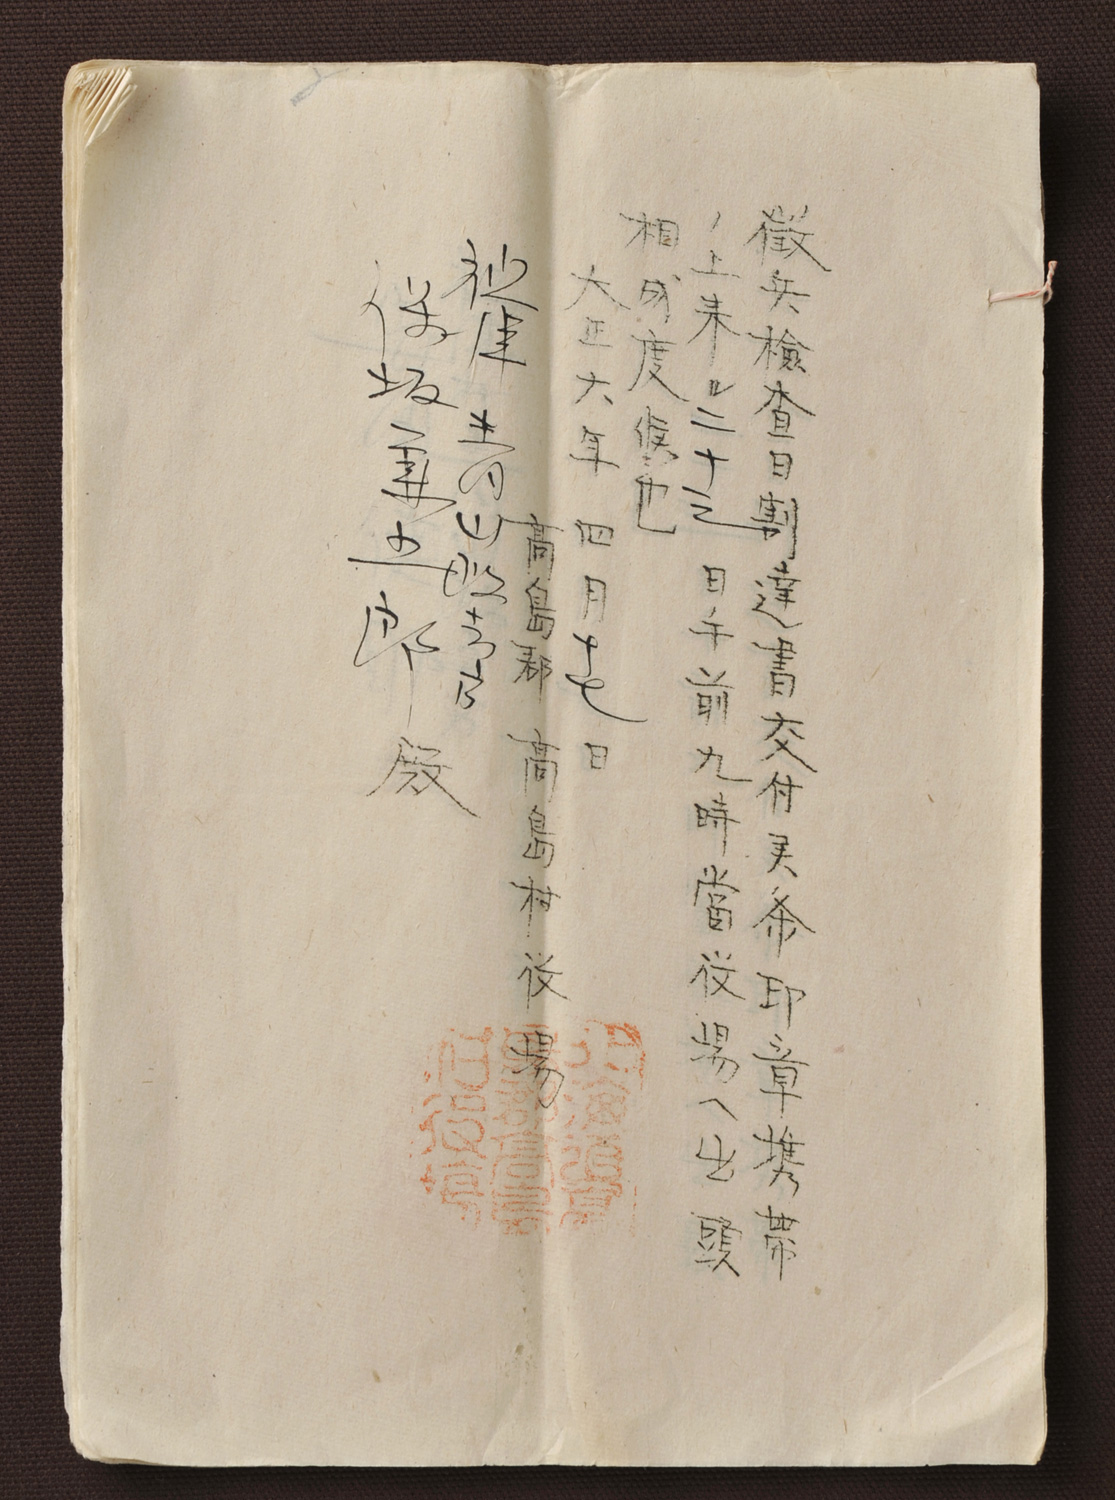 徴兵檢査日割達書交付条印章携帯
ノ上来ル二十三日午前九時當役場ヘ出頭
相成度候也
大正六年四月十七日
高島郡高島村役場
青山
保坂郎殿